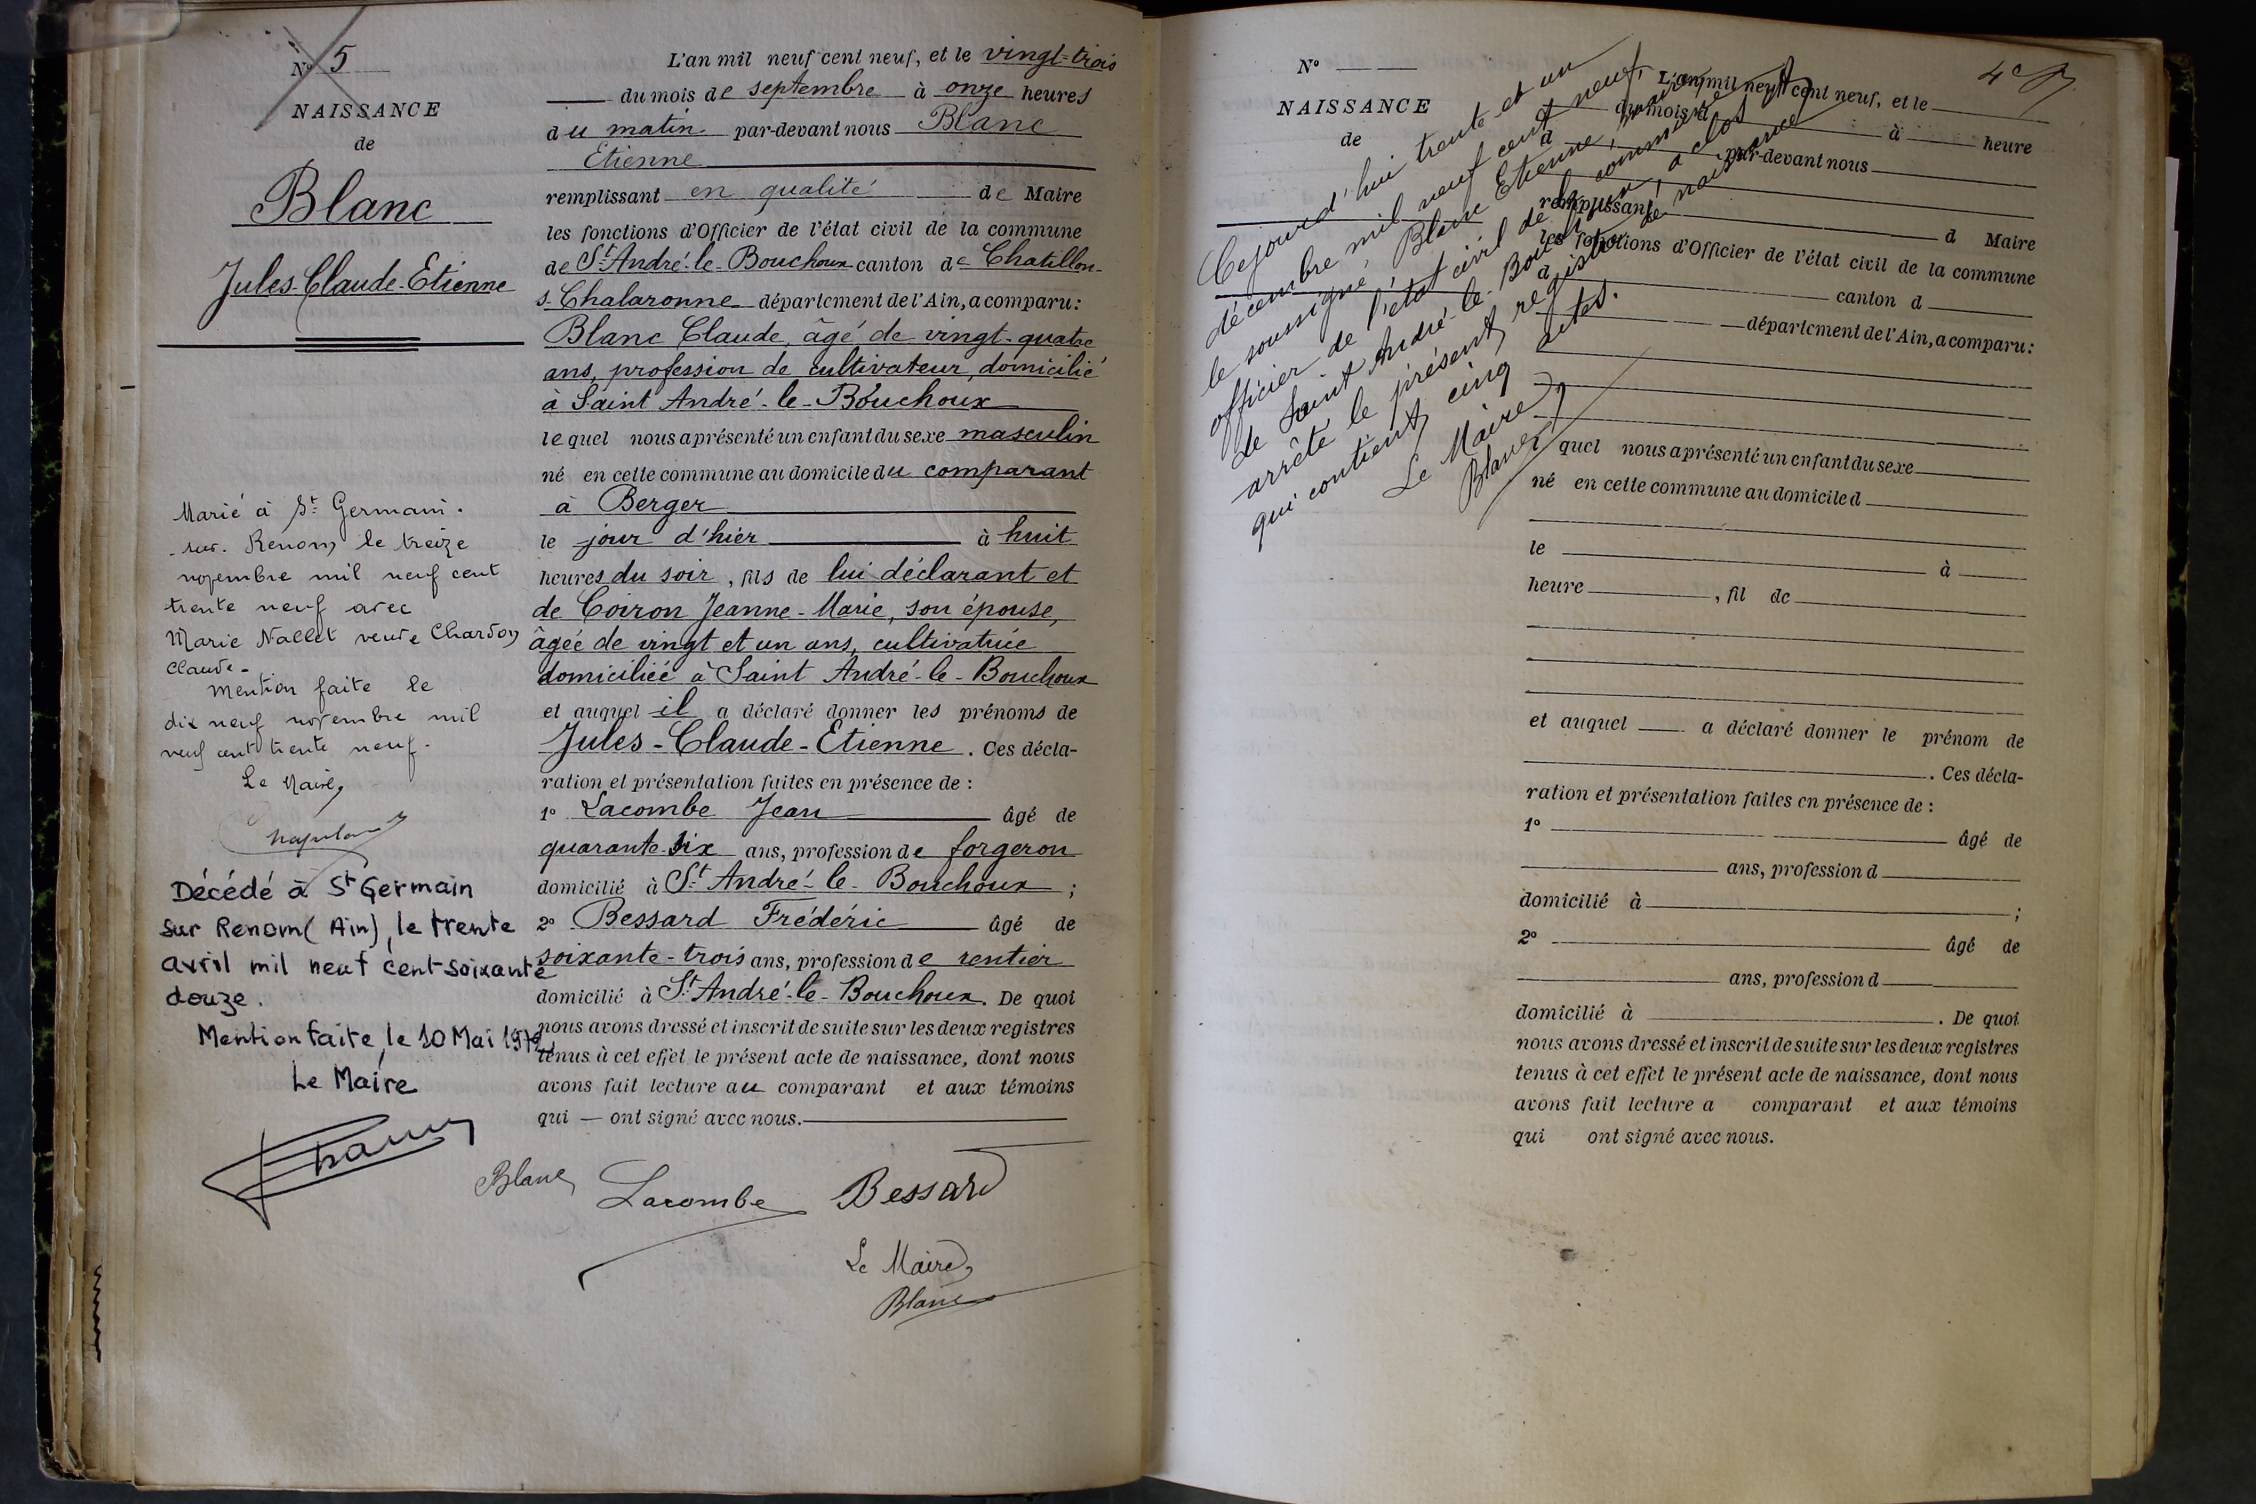 N° 5
NAISSANCE
de
Blanc
Jules-Claude-Etienne
Marié à St Germain-
-sur-Renom le treize
novembre mil neuf cent
trente neuf avec
Marie Nallet veuve Chardon
Claude-
Mention faite le
dix neuf novembre mil
neuf cent trente neuf.
Le Maire,
Décédé à St Germain
sur Renom (Ain), le trente
avril mil neuf cent-soixante
douze.
Mention faite, le 10 Mai 1972,
Le Maire
L'an mil neuf cent neuf, et le vingt-trois
du mois de septembre à onze heures
du matin par-devant nous Blanc
Etienne
remplissant en qualité de Maire
les fonctions d'Officier de l'état civil de la commune
de St-André-le-Bouchoux canton de Chatillon-
s-Chalaronne département de l'Ain, a comparu:
Blanc Claude, âgé de vingt-quatre
ans, profession de cultivateur, domicilié
à Saint André-le-Bouchoux
lequel nous a présenté un enfant du sexe masculin
né en cette commune au domicile du comparant
à Berger
le jour d'hier à huit
heures du soir, fils de lui déclarant et
de Coiron Jeanne-Marie, son épouse,
âgée de vingt et un ans, cultivatrice
domiciliée à Saint André-le-Bouchoux
et auquel il a déclaré donner les prénoms de
Jules-Claude-Etienne. Ces décla-
ration et présentation faites en présence de:
1° Lacombe Jean âgé de
quarante-six ans, profession de forgeron
domicilié à St-André-le-Bouchoux;
2° Bessard Frédéric âgé de
soixante-trois ans, profession de rentier
domicilié à St-André-le-Bouchoux. De quoi
nous avons dressé et inscrit de suite sur les deux registres
tenus à cet effet le présent acte de naissance, dont nous
avons fait lecture au comparant et aux témoins
qui — ont signé avec nous.
Blanc Lacombe Bessard
Le Maire,
Blanc
N°
NAISSANCE
de
Cejourd'hui trente et un
décembre mil neuf cent neuf,
le soussigné, Blanc Etienne, maire,
officier de l'état civil de la commune
de Saint André-le-Bouchoux, a clos et
arrêté le présent registre de naissance
qui contient cinq actes.
Le Maire,
Blanc
L'an mil neuf cent neuf, et le
du mois d à heure
d par-devant nous
remplissant d Maire
les fonctions d'Officier de l'état civil de la commune
d canton d
département de l'Ain, a comparu:
quel nous a présenté un enfant du sexe
né en cette commune au domicile d
le à
heure , fil de
et auquel a déclaré donner le prénom de
. Ces décla-
ration et présentation faites en présence de:
1° âgé de
ans, profession d
domicilié à ;
2° âgé de
ans, profession d
domicilié à . De quoi
nous avons dressé et inscrit de suite sur les deux registres
tenus à cet effet le présent acte de naissance, dont nous
avons fait lecture a comparant et aux témoins
qui ont signé avec nous.